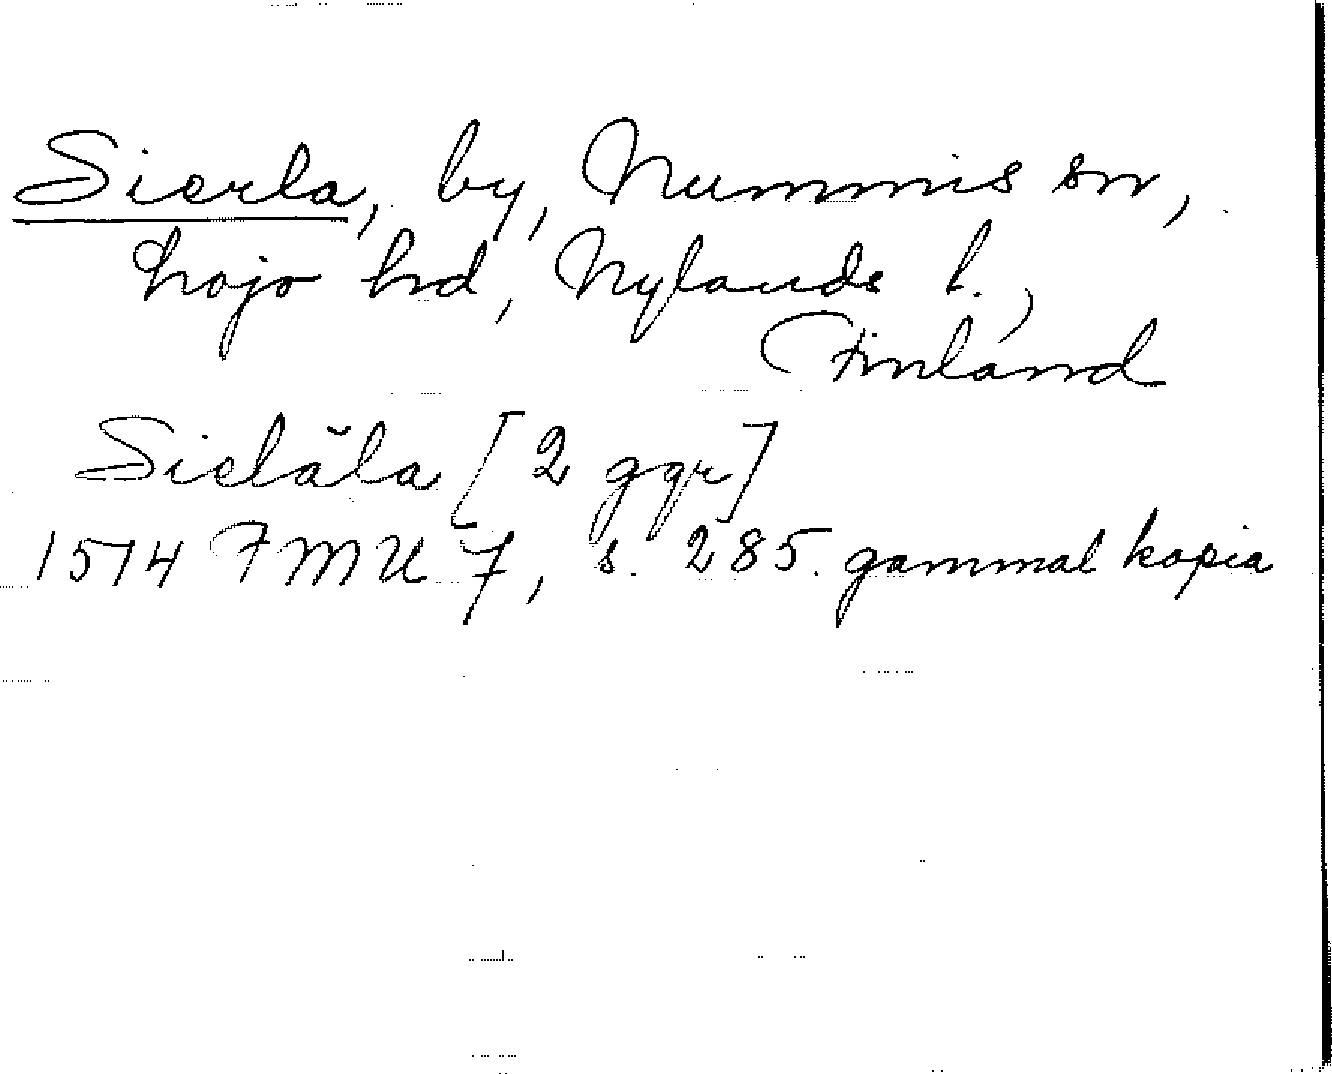 Sierla, by, Nummis sn,
Lojo hd, Nylands l.,
Finland
Sielăla [2 ggr]
1514 FMU 7, s. 285. gammal kopia